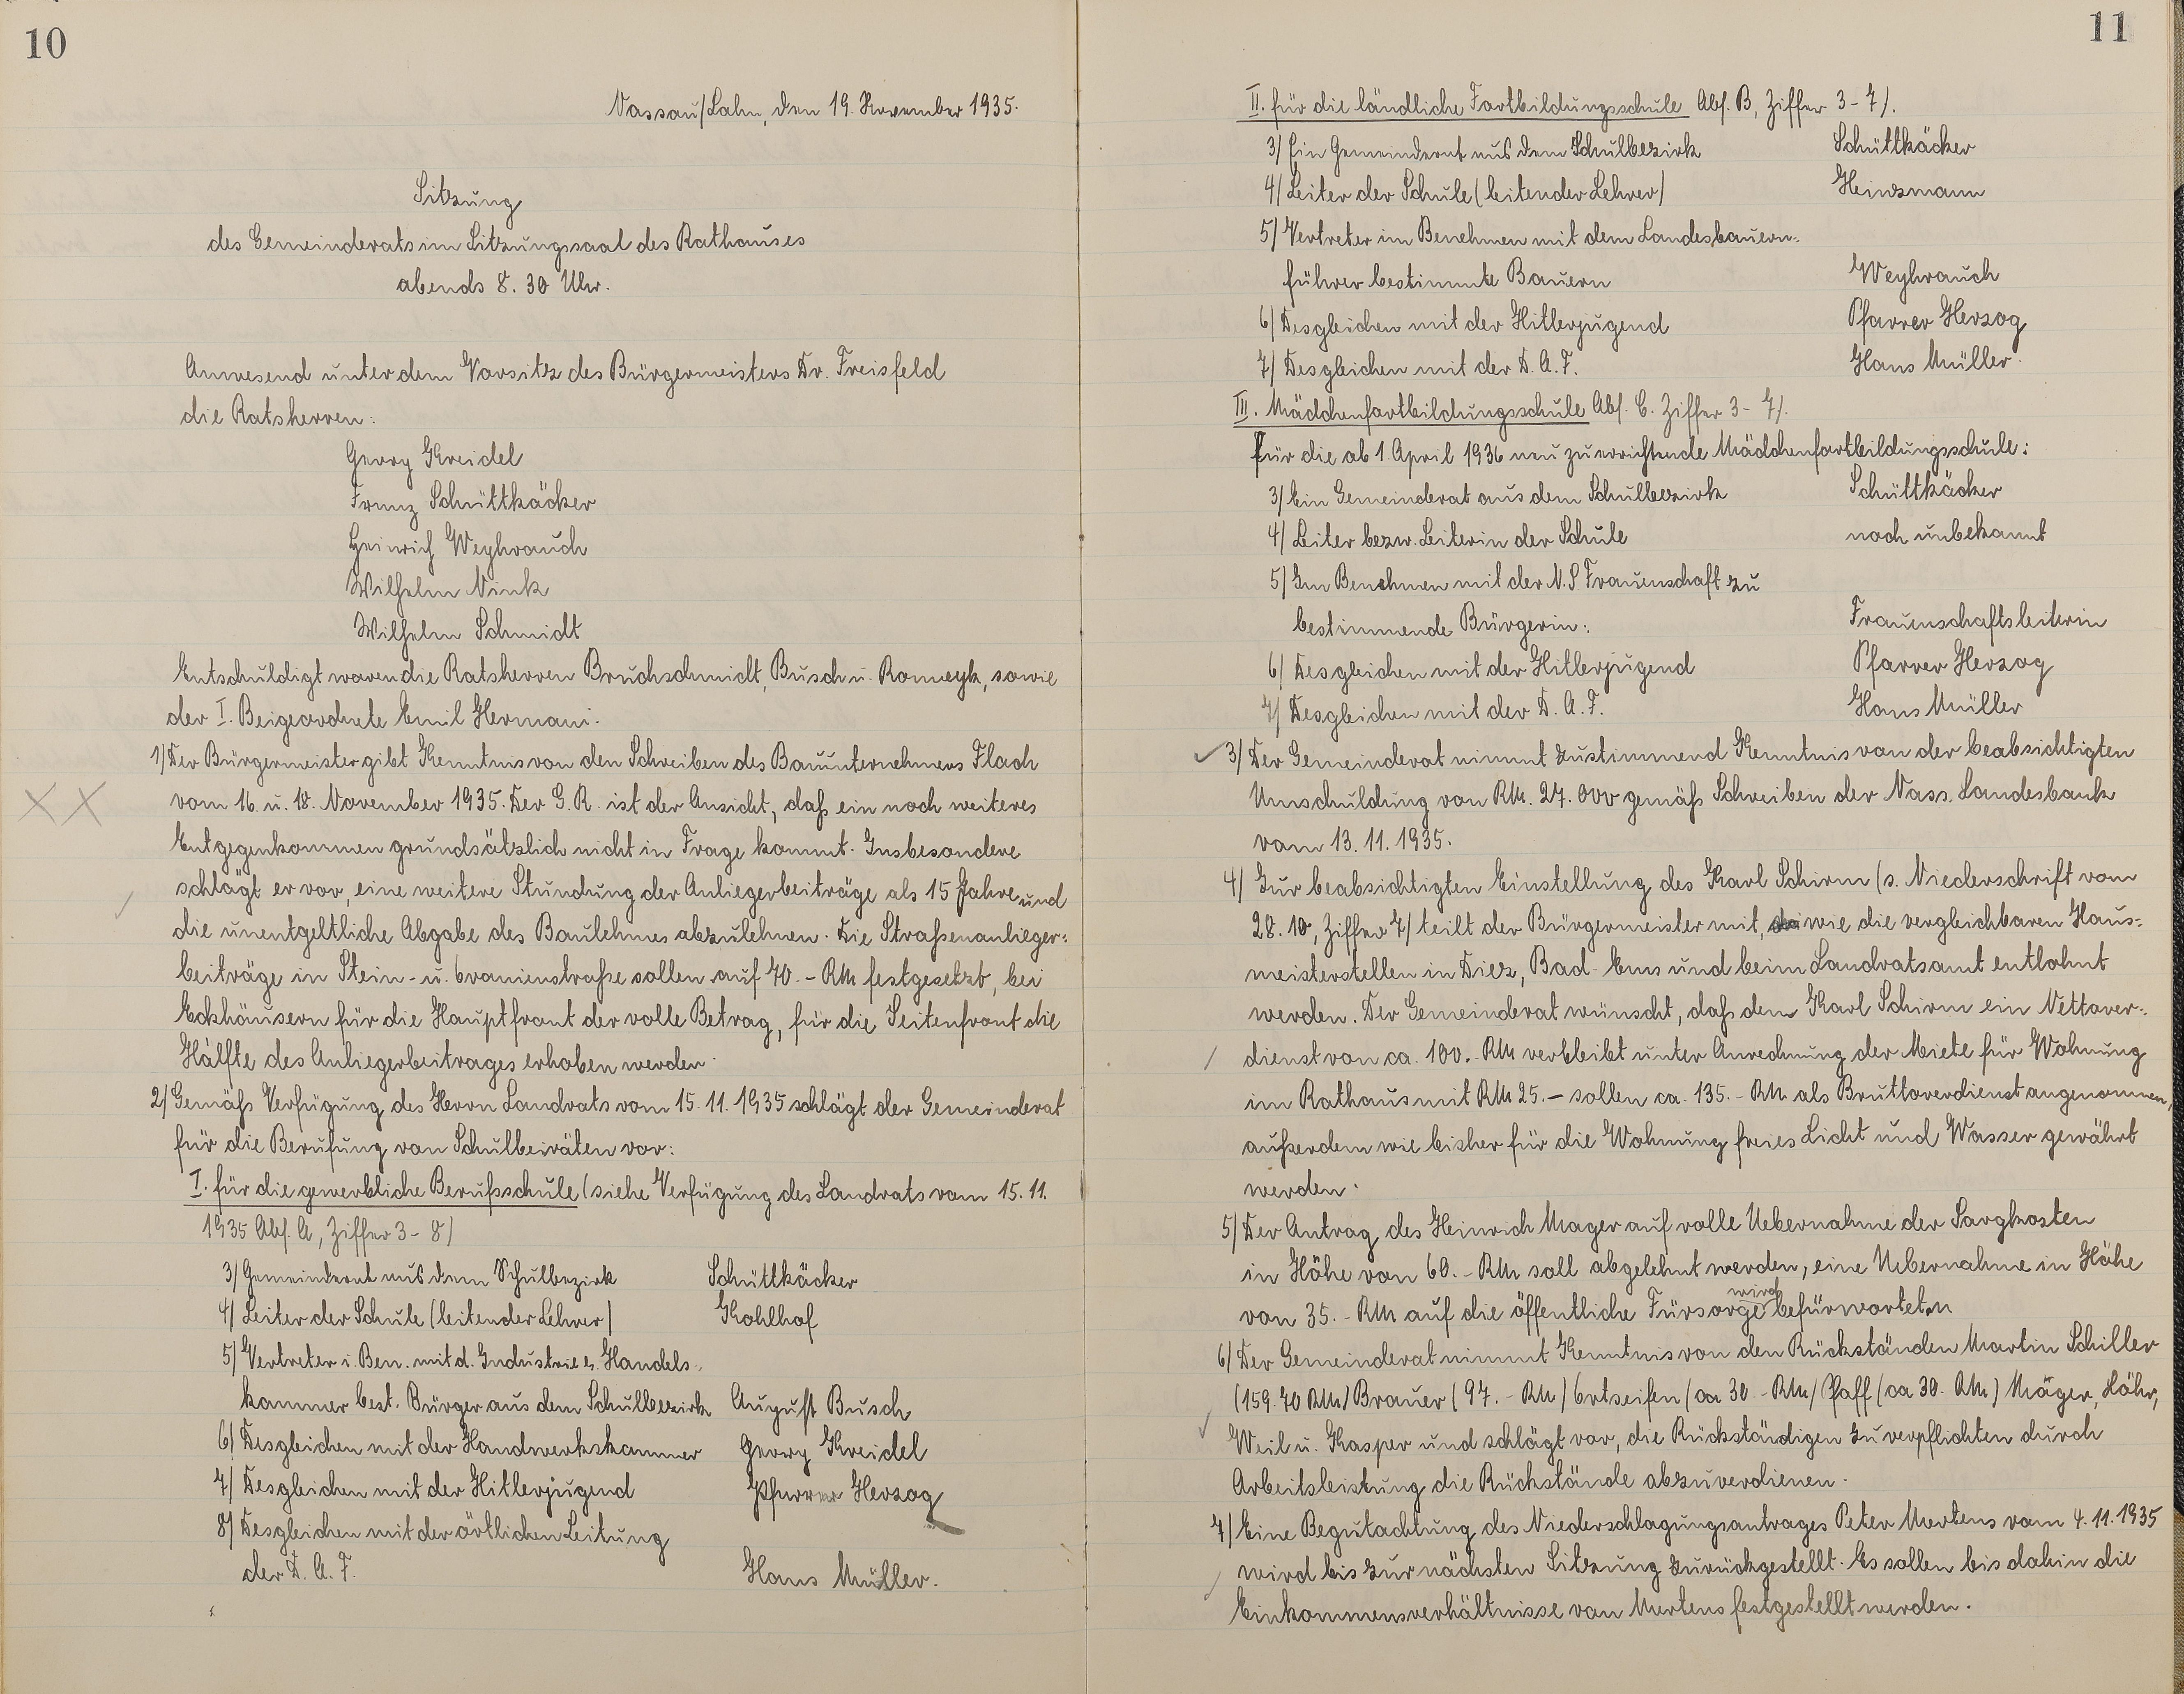 10
Nassau/Lahn, den 19. November 1935.
Sitzung
des Gemeinderats im Sitzungssaal des Rathauses
abends 8.30 Uhr.
Anwesend unter dem Vorsitz des Bürgermeisters Dr. Freisfeld
die Ratsherren:
Georg Kreidel
Franz Schüttkäcker
Heinrich Weyhrauch
Wilhelm Nink
Wilhelm Schmidt
Entschuldigt waren die Ratsherren Bruchschmidt, Busch u. Romeyk, sowie
der I. Beigeordnete Emil Hermani.
1/ Der Bürgermeister gibt Kenntnis von den Schreiben des Bauunternehmers Flach
vom 16. u. 18. November 1935. Der G.R. ist der Ansicht, daß ein noch weiteres
Entgegenkommen grundsätzlich nicht in Frage kommt. Insbesondere
schlägt er vor, eine weitere Stundung der Anliegerbeiträge als 15 Jahre und
die unentgeltliche Abgabe des Baulehmes abzulehnen. Die Straßenanlieger-
beiträge in Stein- u. Oranienstraße sollen auf 70.- RM festgesetzt, bei
Eckhäusern für die Hauptfront der volle Betrag, für die Seitenfront die
Hälfte des Anliegerbeitrages erhoben werden.
2/ Gemäß Verfügung des Herrn Landrats vom 15.11.1935 schlägt der Gemeinderat
für die Berufung von Schulbeiräten vor:
I. für die gewerbliche Berufsschule (siehe Verfügung des Landrats vom 15.11.
1935 Abs. A, Ziffer 3-8/
3/ Gemeinderat aus dem Schulbezirk Schüttkäcker
4/ Leiter der Schule (leitender Lehrer/ Kohlhof
5/ Vertreter i. Ben. mit d. Industrie u. Handels-
kammer best. Bürger aus dem Schulbezirk August Busch
6/ Desgleichen mit der Handwerkskammer Georg Kreidel
7/ Desgleichen mit der Hitlerjugend Pfarrer Herzog
8/ Desgleichen mit der örtlichen Leitung
der D.A.F. Hans Müller.
11
II. für die ländliche Fortbildungsschule Abs. B, Ziffer 3-7/.
3/ Ein Gemeinderat aus dem Schulbezirk Schüttkäcker
4/ Leiter der Schule (leitender Lehrer/ Heinzmann
5/ Vertreter im Benehmen mit dem Landesbauern-
führer bestimmte Bauern Weyhrauch
6/ Desgleichen mit der Hitlerjugend Pfarrer Herzog
7/ Desgleichen mit der D.A.F. Hans Müller.
III. Mädchenfortbildungsschule Abs. C. Ziffer 3-7/.
Für die ab 1. April 1936 neu zu errichtende Mädchenfortbildungsschule:
3/ Ein Gemeinderat aus dem Schulbezirk Schüttkäcker
4/ Leiter bezw. Leiterin der Schule noch unbekannt
5/ Im Benehmen mit der N.S Frauenschaft zu
bestimmende Bürgerin: Frauenschaftsleiterin
6/ Desgleichen mit der Hitlerjugend Pfarrer Herzog
7/ Desgleichen mit der D.A.F. Hans Müller
3/ Der Gemeinderat nimmt zustimmend Kenntnis von der beabsichtigten
Umschuldung von RM. 27.000 gemäß Schreiben der Nass. Landesbank
vom 13.11.1935.
4/ Zur beabsichtigten Einstellung des Karl Schirm (s. Niederschrift vom
28.10, Ziffer 7/ teilt der Bürgermeister mit, wie die vergleichbaren Haus-
meisterstellen in Diez, Bad Ems und beim Landratsamt entlohnt
werden. Der Gemeinderat wünscht, daß dem Karl Schirm ein Nettover-
dienst von ca. 100.- RM verbleibt unter Anrechnung der Miete für Wohnung
im Rathaus mit RM 25.- sollen ca. 135.- RM. als Bruttoverdienst angenommen,
außerdem wie bisher für die Wohnung freies Licht und Wasser gewährt
werden.
5/ Der Antrag des Heinrich Mager auf volle Uebernahme der Sargkosten
in Höhe von 60.- RM soll abgelehnt werden, eine Uebernahme in Höhe
von 35.- RM auf die öffentliche Fürsorge wird befürwortet.
6/ Der Gemeinderat nimmt Kenntnis von den Rückständen Martin Schiller
(159.70 RM/ Brauer (97.- RM/ Ortseifen (ca 30.- RM/ Pfaff (ca 30. RM) Mäger, Höhr,
Weil u. Kasper und schlägt vor, die Rückständigen zu verpflichten durch
Arbeitsleistung die Rückstände abzuverdienen.
7/ Eine Begutachtung des Niederschlagungsantrages Peter Mertens vom 4.11.1935
wird bis zur nächsten Sitzung zurückgestellt. Es sollen bis dahin die
Einkommensverhältnisse von Mertens festgestellt werden.